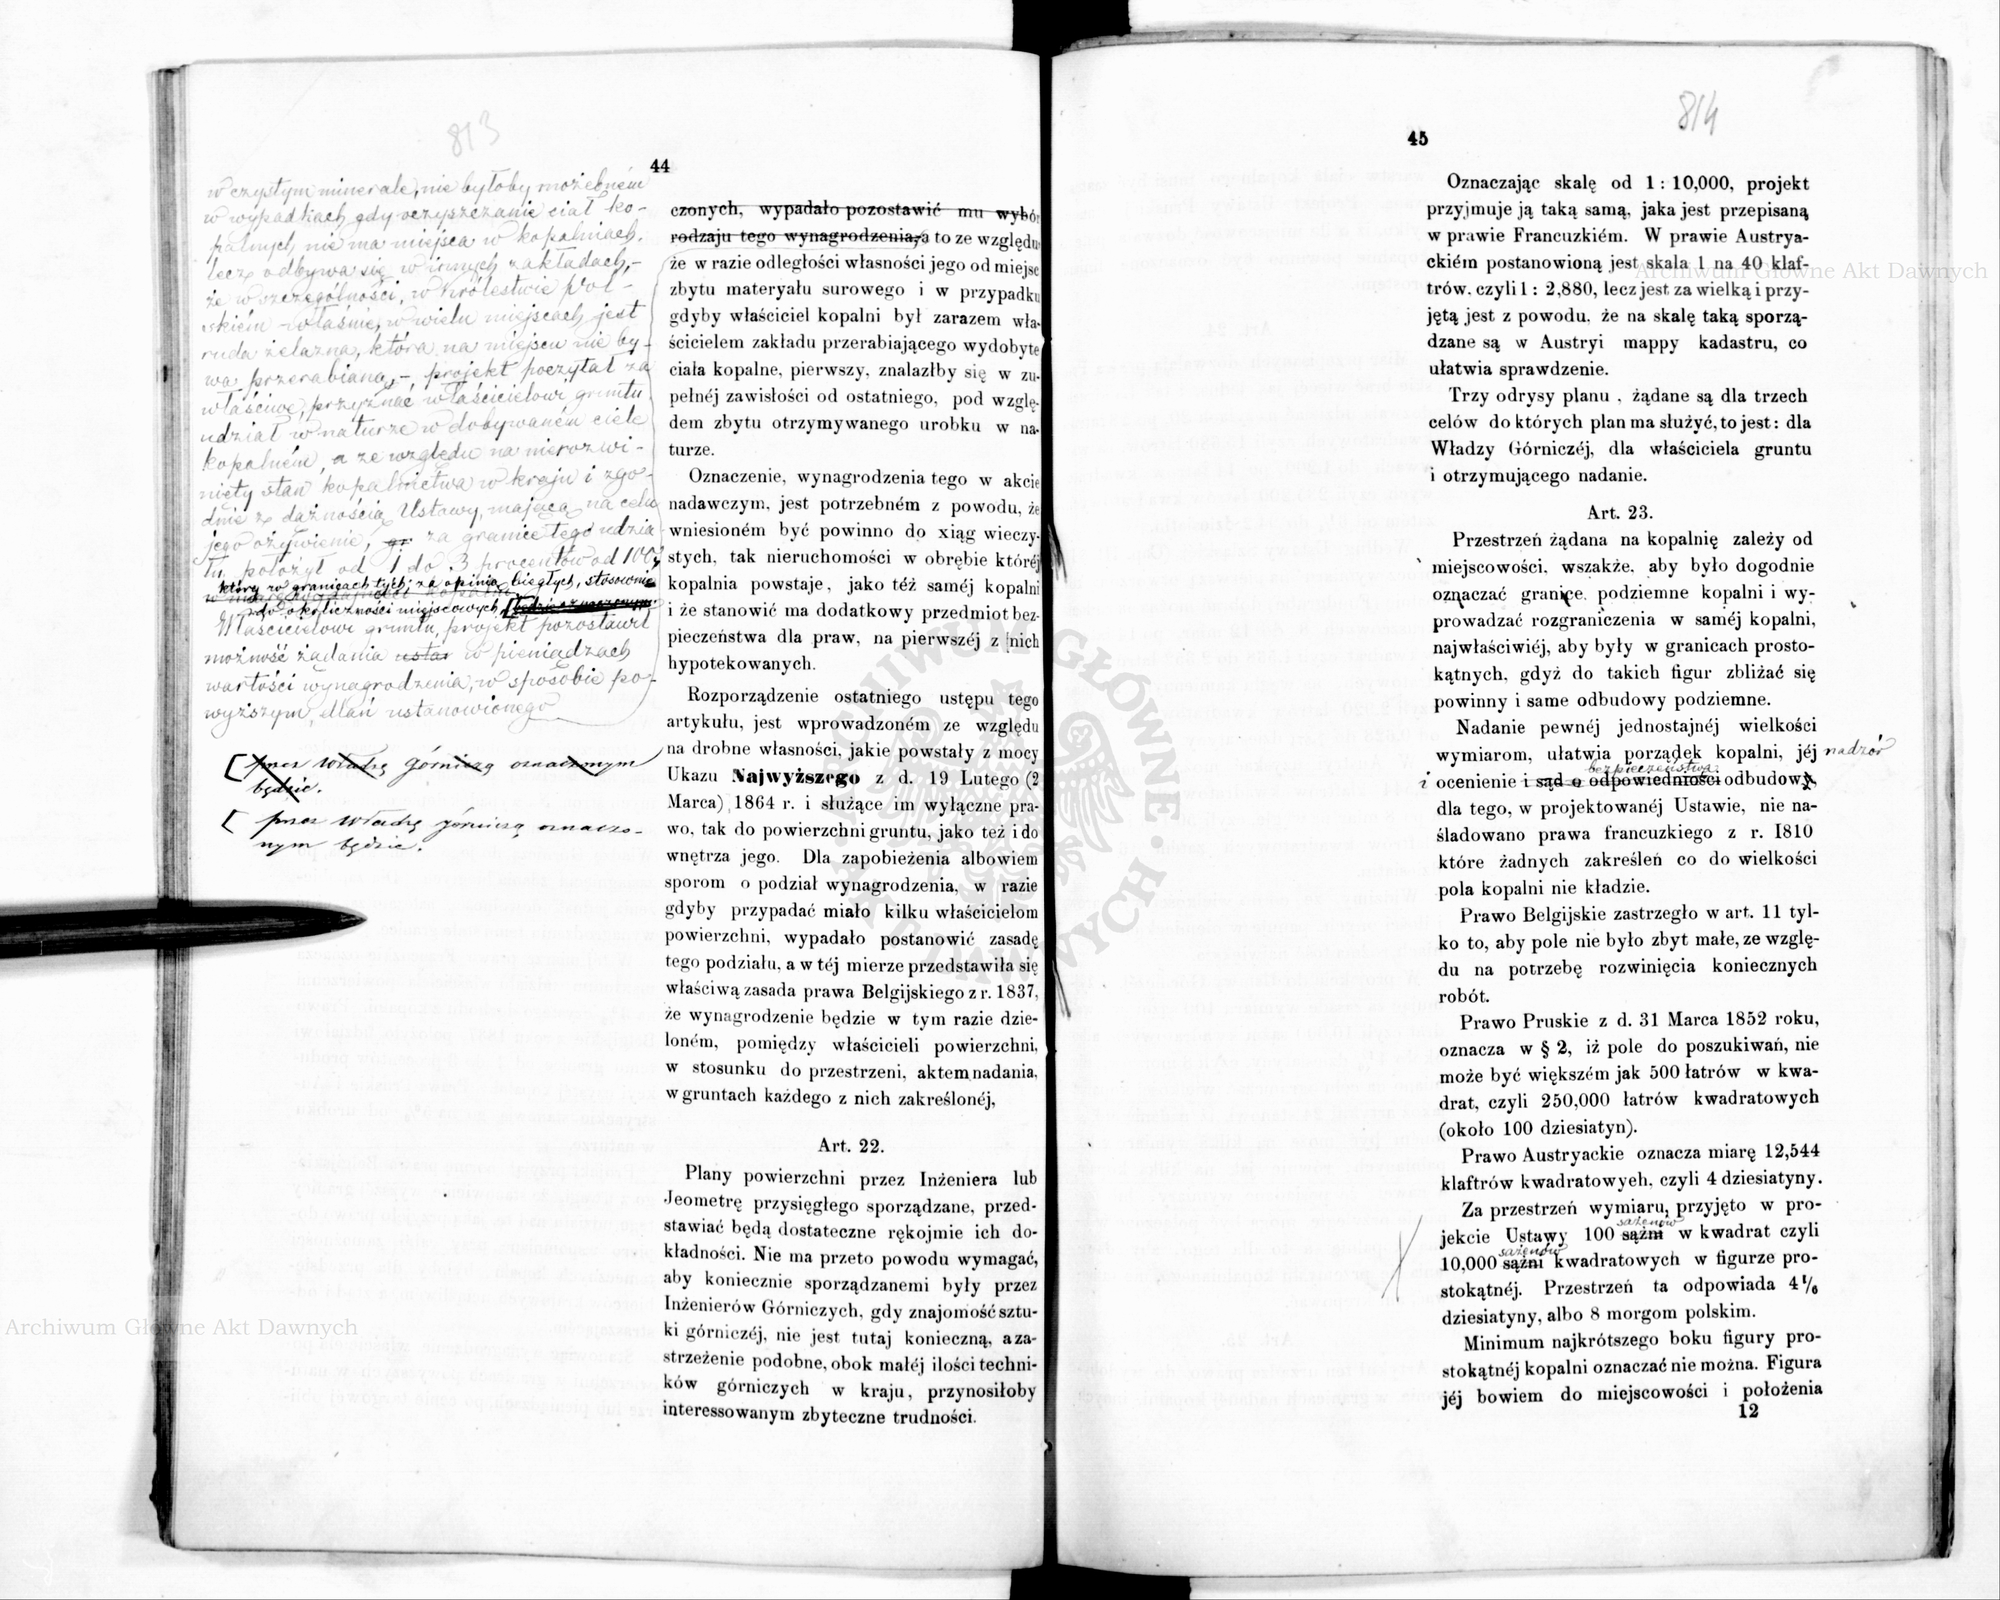 813
44
w czystym minerale, nie byłoby możebném
w wypadkach gdy oczyszczanie ciał ko-
palnych nie ma miejsca w kopalniach,
lecz odbywa się w innych zakładach,-
że w szczególności, w Królestwie Pol-
skiém właśnie, w wielu miejscach jest
ruda żelazna, która na miejscu nie by-
wa przerabianą,-, projekt poczytał za
właściwe, przyznać właścicielowi gruntu
udział w naturze w dobywaném ciele
kopalném, a ze względu na nierozwi-
nięty stan kopalnictwa w kraju i zgo-
dnie z dążnością Ustawy, mającą na celu
jego ożywienie, za granice tego udzia
łu położył od 1 do 3 procentów od 100,
który w granicach tych, za opinią biegłych, stosownie
do okoliczności miejscowych
Właścicielowi gruntu, projekt pozostawił
możność żądania w pieniądzach
wartości wynagrodzenia, w sposobie po-
wyższym, dlań ustanowionego
[przez Władzę górniczą oznaczonym
będzie.
[ przez Władzę górniczą oznaczo-
nym będzie.
czonych, wypadało pozostawić mu wybór
rodzaju tego wynagrodzenia, a to ze względu
że w razie odległości własności jego od miejsc
zbytu materyału surowego i w przypadku
gdyby właściciel kopalni był zarazem wła-
ścicielem zakładu przerabiającego wydobyte
ciała kopalne, pierwszy, znalazłby się w zu-
pełnéj zawisłości od ostatniego, pod wzglę-
dem zbytu otrzymywanego urobku w na-
turze.
Oznaczenie, wynagrodzenia tego w akcie
nadawczym, jest potrzebném z powodu, że
wniesioném być powinno do xiąg wieczy-
stych, tak nieruchomości w obrębie któréj
kopalnia powstaje, jako téż saméj kopalni
i że stanowić ma dodatkowy przedmiot bez-
pieczeństwa dla praw, na pierwszéj z nich
hypotekowanych.
Rozporządzenie ostatniego ustępu tego
artykułu, jest wprowadzoném ze względu
na drobne własności, jakie powstały z mocy
Ukazu Najwyższego z d. 19 Lutego (2
Marca) 1864 r. i służące im wyłączne pra-
wo, tak do powierzchni gruntu, jako też i do
wnętrza jego. Dla zapobieżenia albowiem
sporom o podział wynagrodzenia, w razie
gdyby przypadać miało kilku właścicielom
powierzchni, wypadało postanowić zasadę
tego podziału, a w téj mierze przedstawiła się
właściwą zasada prawa Belgijskiego z r. 1837,
że wynagrodzenie będzie w tym razie dzie-
loném, pomiędzy właścicieli powierzchni,
w stosunku do przestrzeni, aktem nadania,
w gruntach każdego z nich zakreślonéj,
Art. 22.
Plany powierzchni przez Inżeniera lub
Jeometrę przysięgłego sporządzane, przed-
stawiać będą dostateczne rękojmie ich do-
kładności. Nie ma przeto powodu wymagać,
aby koniecznie sporządzanemi były przez
Inżenierów Górniczych, gdy znajomość sztu-
ki górniczéj, nie jest tutaj konieczną, a za-
strzeżenie podobne, obok małéj ilości techni-
ków górniczych w kraju, przynosiłoby
interessowanym zbyteczne trudności.
814
45
Oznaczając skalę od 1 : 10,000, projekt
przyjmuje ją taką samą, jaka jest przepisaną
w prawie Francuzkiém. W prawie Austrya-
ckiém postanowioną jest skala 1 na 40 klaf-
trów, czyli 1 : 2,880, lecz jest za wielką i przy-
jętą jest z powodu, że na skalę taką sporzą-
dzane są w Austryi mappy kadastru, co
ułatwia sprawdzenie.
Trzy odrysy planu , żądane są dla trzech
celów do których plan ma służyć, to jest: dla
Władzy Górniczéj, dla właściciela gruntu
i otrzymującego nadanie.
Art. 23.
Przestrzeń żądana na kopalnię zależy od
miejscowości, wszakże, aby było dogodnie
oznaczać granice podziemne kopalni i wy-
prowadzać rozgraniczenia w saméj kopalni,
najwłaściwiéj, aby były w granicach prosto-
kątnych, gdyż do takich figur zbliżać się
powinny i same odbudowy podziemne.
Nadanie pewnéj jednostajnéj wielkości
wymiarom, ułatwia porządek kopalni, jéj nadzór
bezpieczeństwa
i ocenienie i sąd o odpowiedniości odbudowy,
dla tego, w projektowanéj Ustawie, nie na-
śladowano prawa francuzkiego z r. 1810
które żadnych zakreśleń co do wielkości
pola kopalni nie kładzie.
Prawo Belgijskie zastrzegło w art. 11 tyl-
ko to, aby pole nie było zbyt małe, ze wzglę-
du na potrzebę rozwinięcia koniecznych
robót.
Prawo Pruskie z d. 31 Marca 1852 roku,
oznacza w § 2, iż pole do poszukiwań, nie
może być większém jak 500 łatrów w kwa-
drat, czyli 250,000 łatrów kwadratowych
(około 100 dziesiatyn).
Prawo Austryackie oznacza miarę 12,544
klaftrów kwadratowych, czyli 4 dziesiatyny.
Za przestrzeń wymiaru, przyjęto w pro-
sażenów
jekcie Ustawy 100 sążni w kwadrat czyli
sażenów
10,000 sążni kwadratowych w figurze pro-
stokątnéj. Przestrzeń ta odpowiada 4 1/6
dziesiatyny, albo 8 morgom polskim.
Minimum najkrótszego boku figury pro-
stokątnéj kopalni oznaczać nie można. Figura
jéj bowiem do miejscowości i położenia
12
Archiwum Główne Akt Dawnych
Archiwum Główne Akt Dawnych
ARCHIWUM GŁÓWNE AKT DAWNYCH